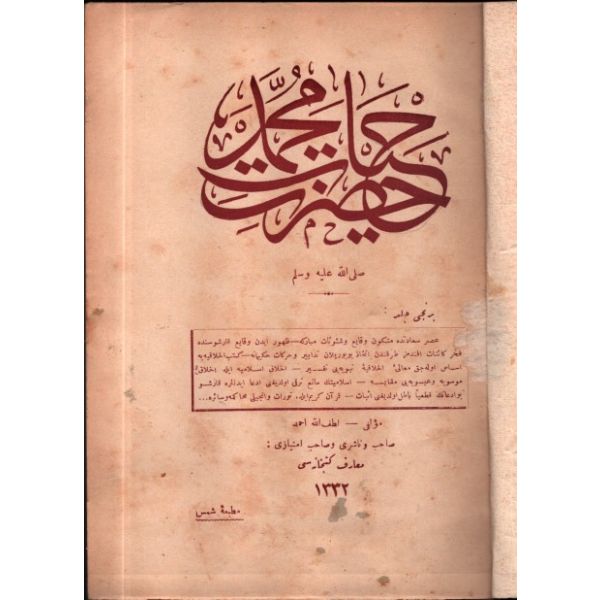 حیات حضرت محمد
صلی الله علیه وسلم
برنجی جلد :
عصر سعادتده متکون وقایع وشئونات مبارکه — ظهور ایدن وقایع قارشوسنده
فخر کائنات افندمز طرفندن اتخاذ بویوریلان تدابیر وحرکات حکیمانه — کتب اخلاقیه یه
اساس اوله جق معالیٔ اخلاقیهٔ نبویه یی تفسیر — اخلاق اسلامیه ایله اخلاق
موسویه وعیسویه یی مقایسه — اسلامیتك مانع ترقی اولدیغنی ادعا ایدنلره قارشو
بو ادعانك قطعیاً باطل اولدیغنی اثبات — قرآن کریم ایله تورات وانجیلی محاکمه وسائره ...
مؤلفی — لطف الله احمد
صاحب و ناشری وصاحب امتیازی :
معارف کتبخانه سی
١٣٣٢
مطبعهٔ شمس